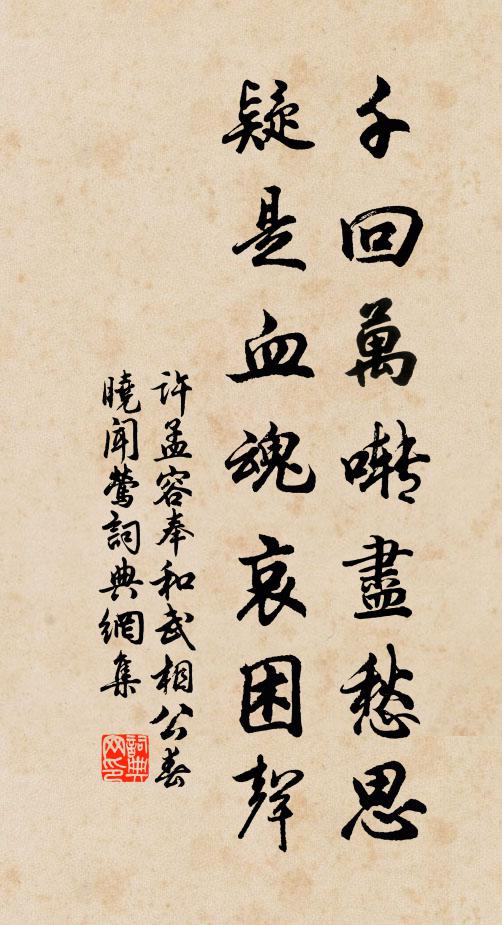 千回萬囀盡愁思
疑是血魂哀困聲
許孟容奉和武相公春
曉聞鶯詞典網集
詞典
网印